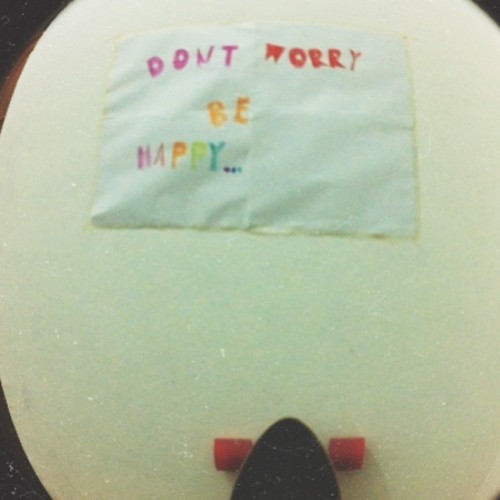 DONT WORRY
BE
HAPPY...